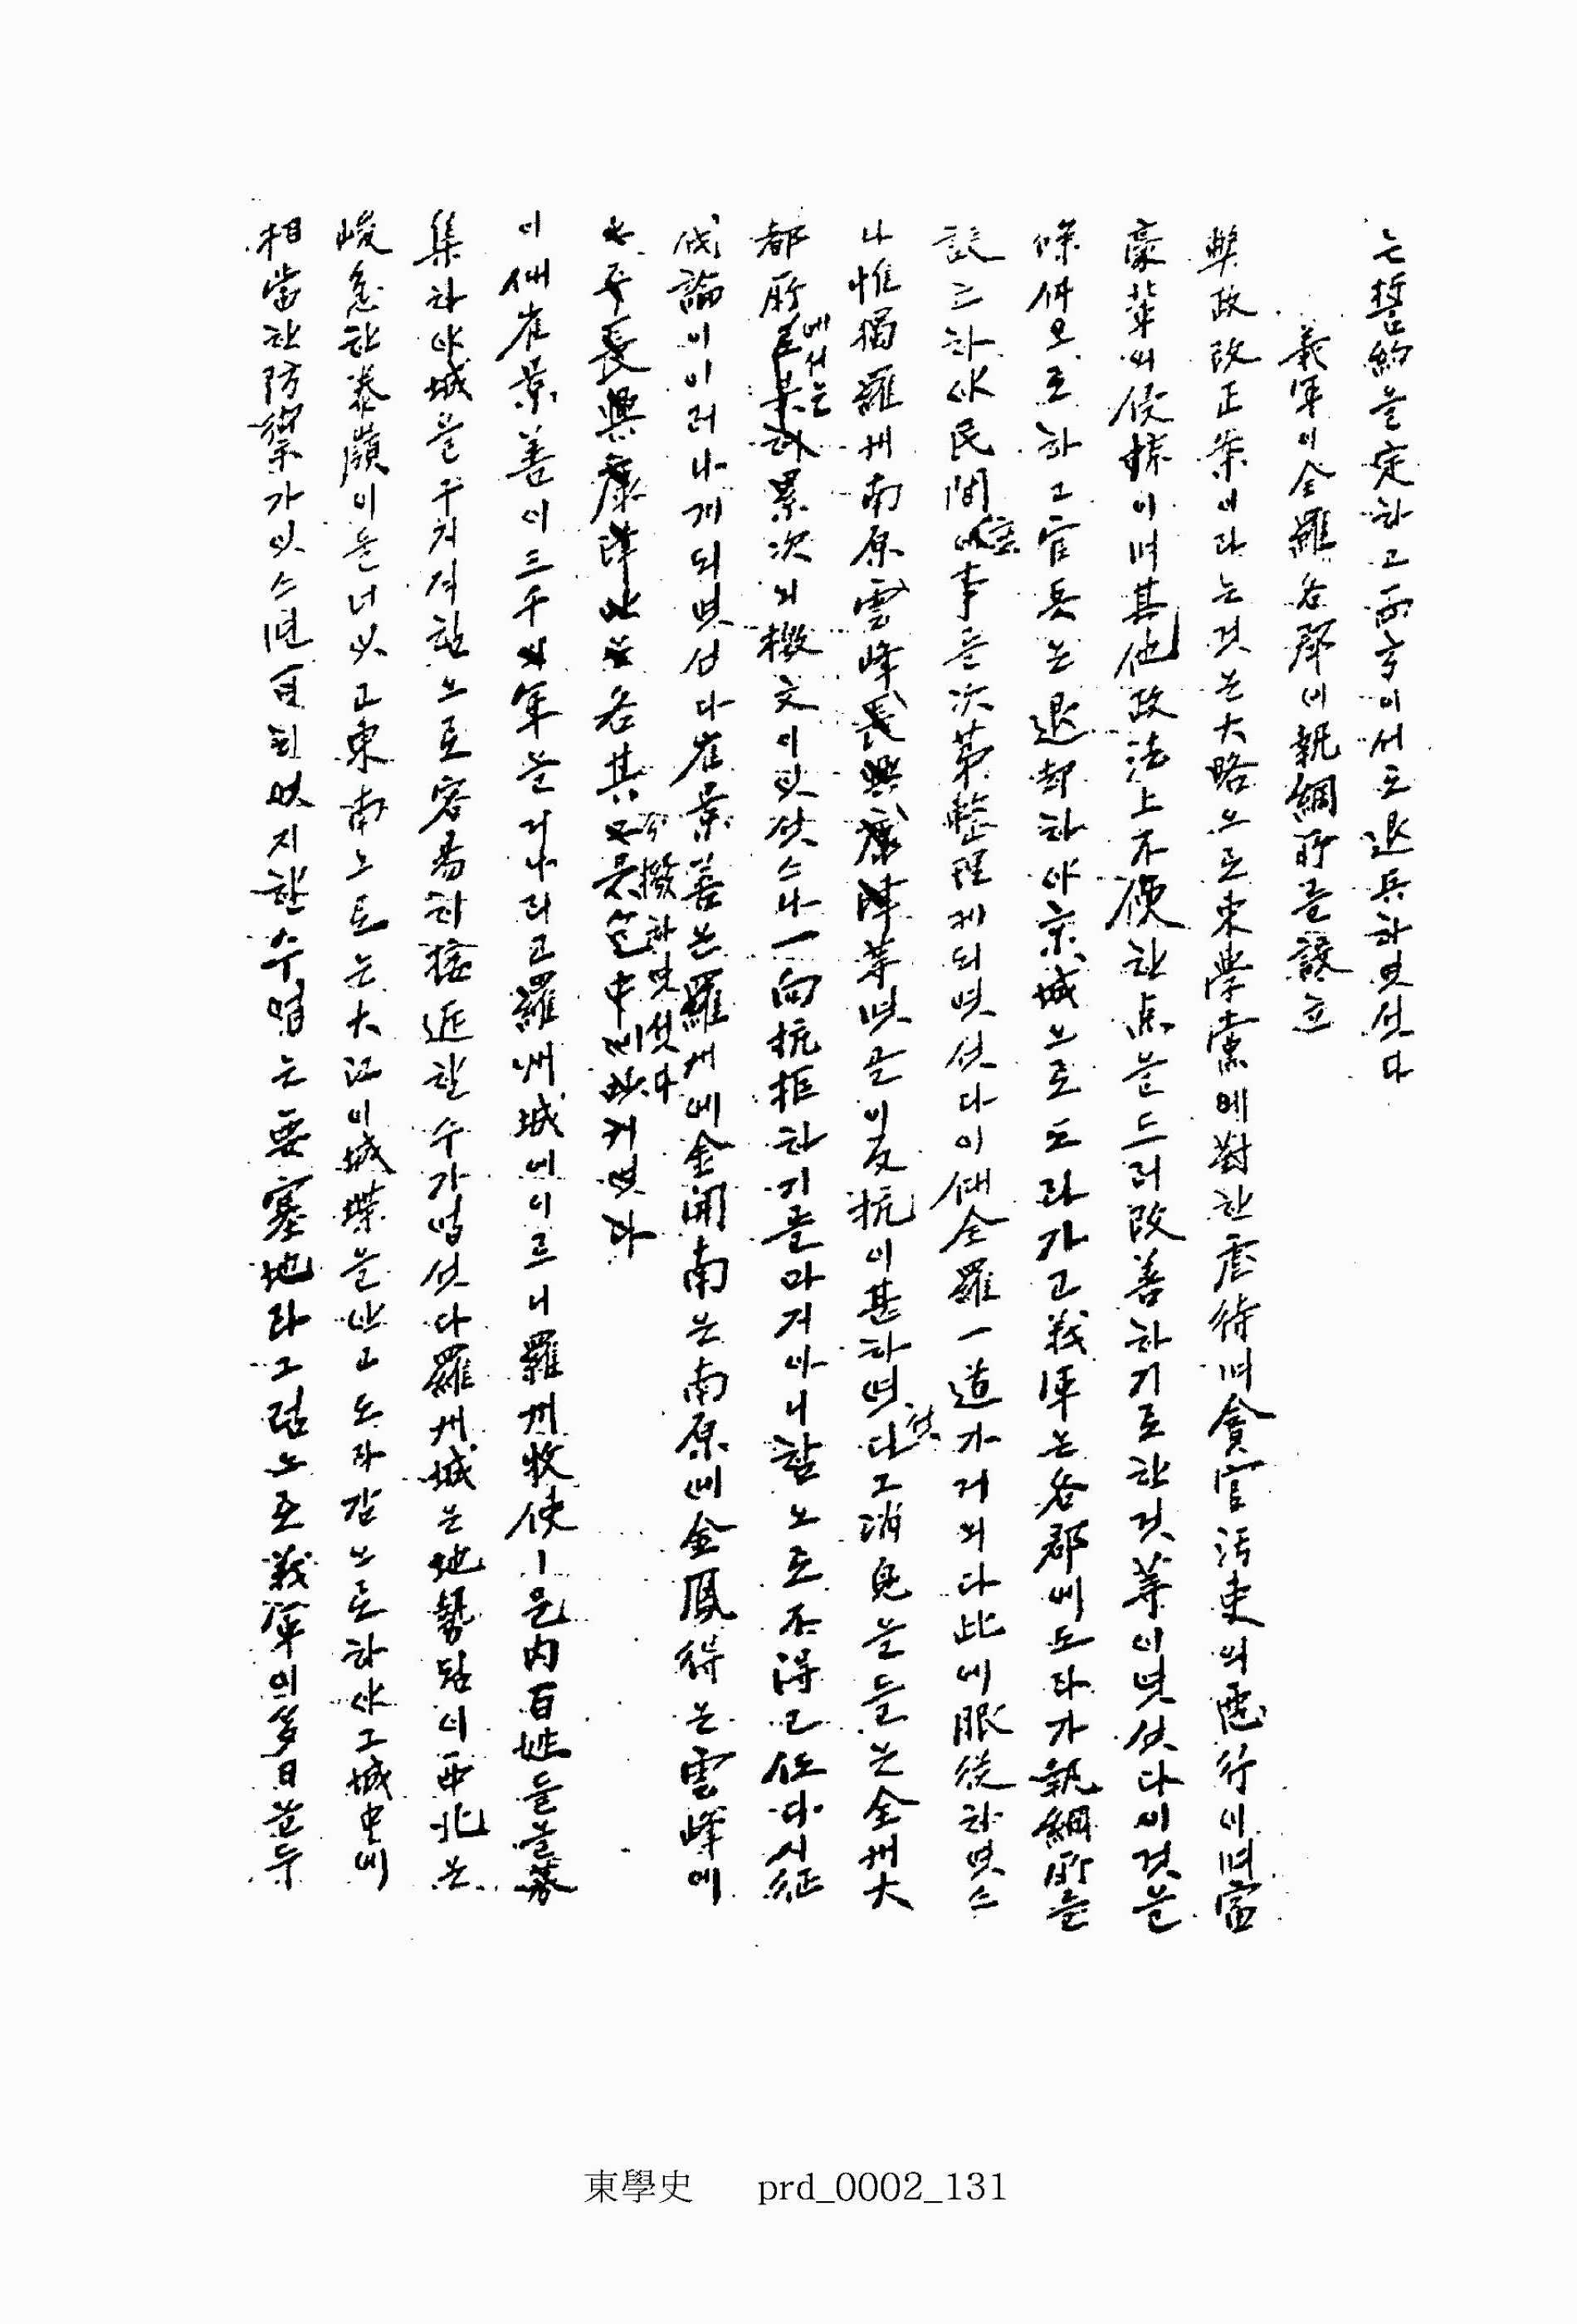 는誓約을定하고兩方이서로退兵하엿섯다
義軍이全羅各郡에執綱所를設立
弊政改正案이라는것은大略으로東學黨에對한虐待며貪官汚吏의惡行이며富
豪輩의侵掠이며其他政法上不便한点을드러改善하기로한것等이엿섯다이것을
條件으로하고官兵은退却하야京城으로도라가고義軍은各郡에도라가執綱所를
設立하야民間庶事를次第整理케되엿섯다이때全羅一道가거의다此에服從하엿스
나惟獨羅州南原雲峰長興康津等옛골이反抗이甚하엿섯다그消息을들은全州大
都所에서는累次의檄文이잇섯스나一向抗拒하기를마지아니함으로不得已他다시征
伐論이이러나게되엿섯다崔景善은羅州에金開南은南原에金鳳得은雲峰에
各其分撥하엿섯다
이때崔景善이三千義軍을거나리고羅州城에이르니羅州牧使ㅣ은內百姓들을募
集하야城을구지저킴으로容易히接近할수가업섯다羅州城은地勢됨이西北은
峻急한泰嶺이둘너잇고東南으로는大江이城堞을안고도라감으로하야그城中에
相當한防禦가잇스면百萬명지한수업는要塞地라그럼으로義軍의多日을두